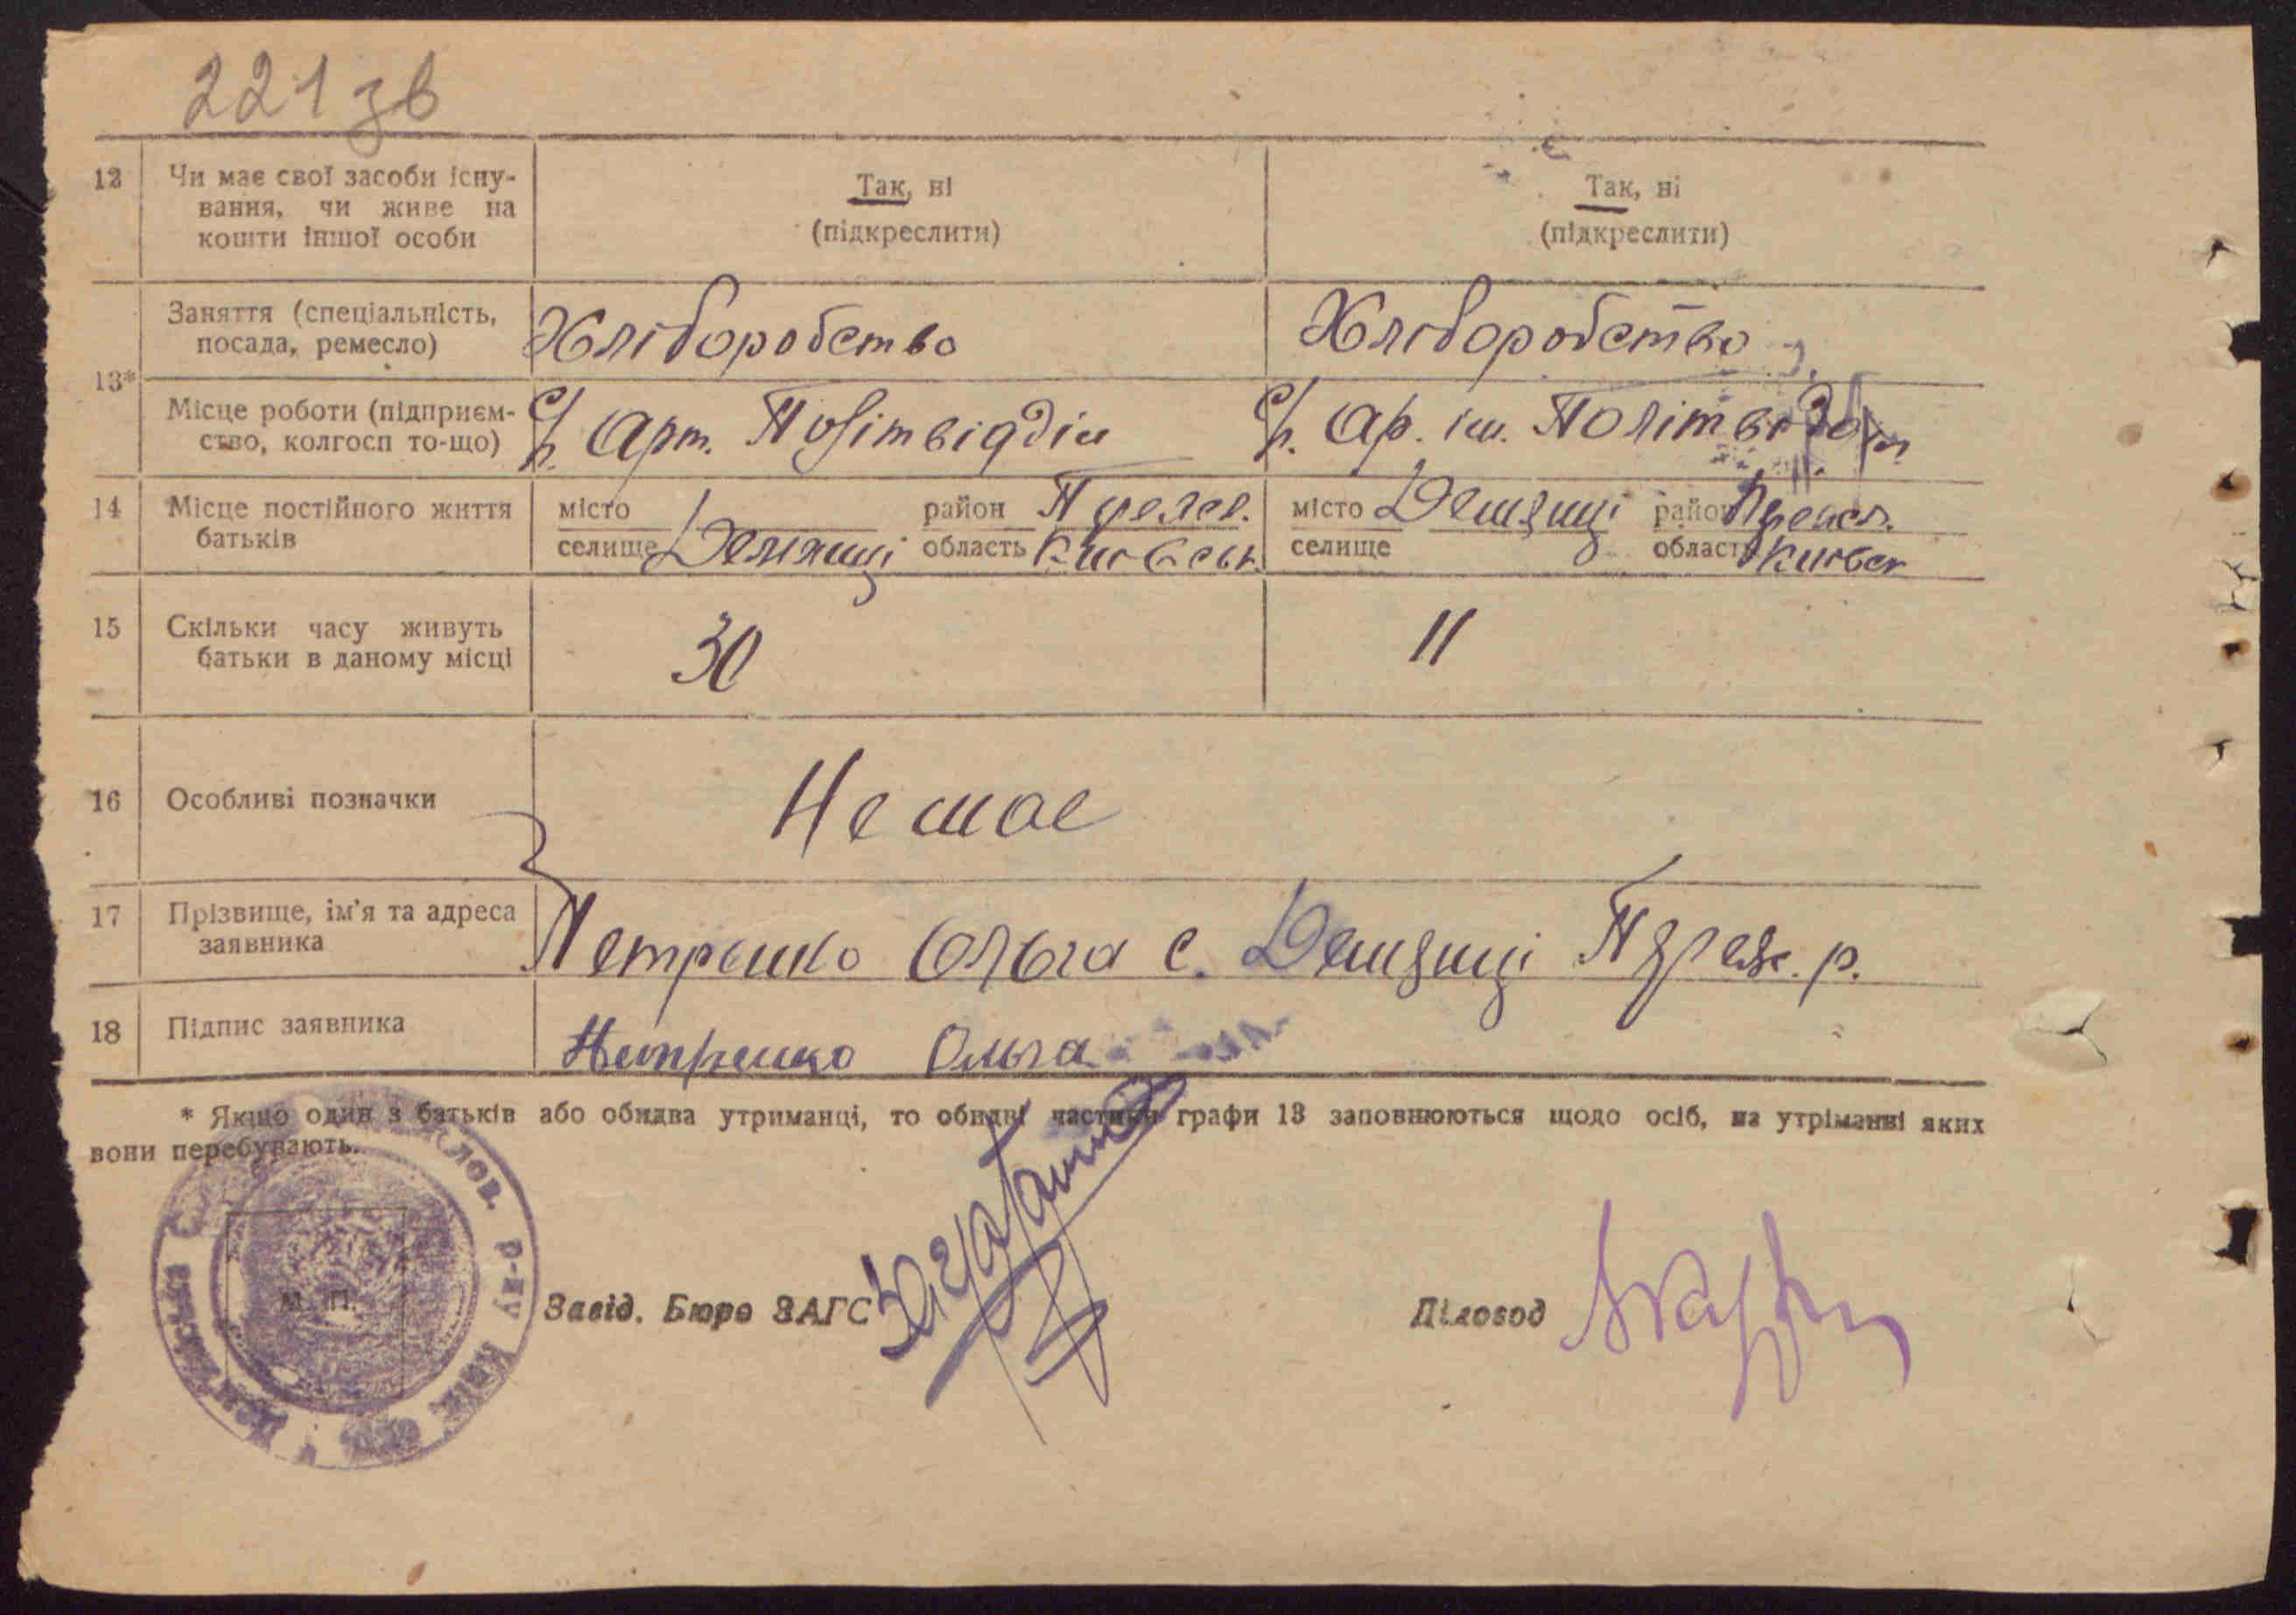 221 зв
12 Чи має свої засоби існу-
вання, чи живе на
кошти іншої особи
Так, ні
(підкреслити)
Так, ні
(підкреслити)
13*
Заняття (спеціальність,
посада, ремесло)
Хліборобство
Хліборобство
Місце роботи (підприєм-
ство, колгосп то-що)
С/г. Арт. Політвідділ
С/г. Ар. ім. Політвідділ
14 Місце постійного життя
батьків
місто
селище Демянці
район Переясл.
область Київськ.
місто Демянці
селище
район Переясл.
область Київськ
15 Скільки часу живуть
батьки в даному місці
30
11
16 Особливі позначки
Немає
17 Прізвище, ім'я та адреса
заявника
Петренко Ольга с. Демянці Переясл. р.
18 Підпис заявника
Петренко Ольга
* Якщо один з батьків або обидва утриманці, то обидві частини графи 13 заповнюються щодо осіб, на утріманні яких
вони перебувають.
р-ну
М. П.
Завід. Бюро ЗАГС
Діловод